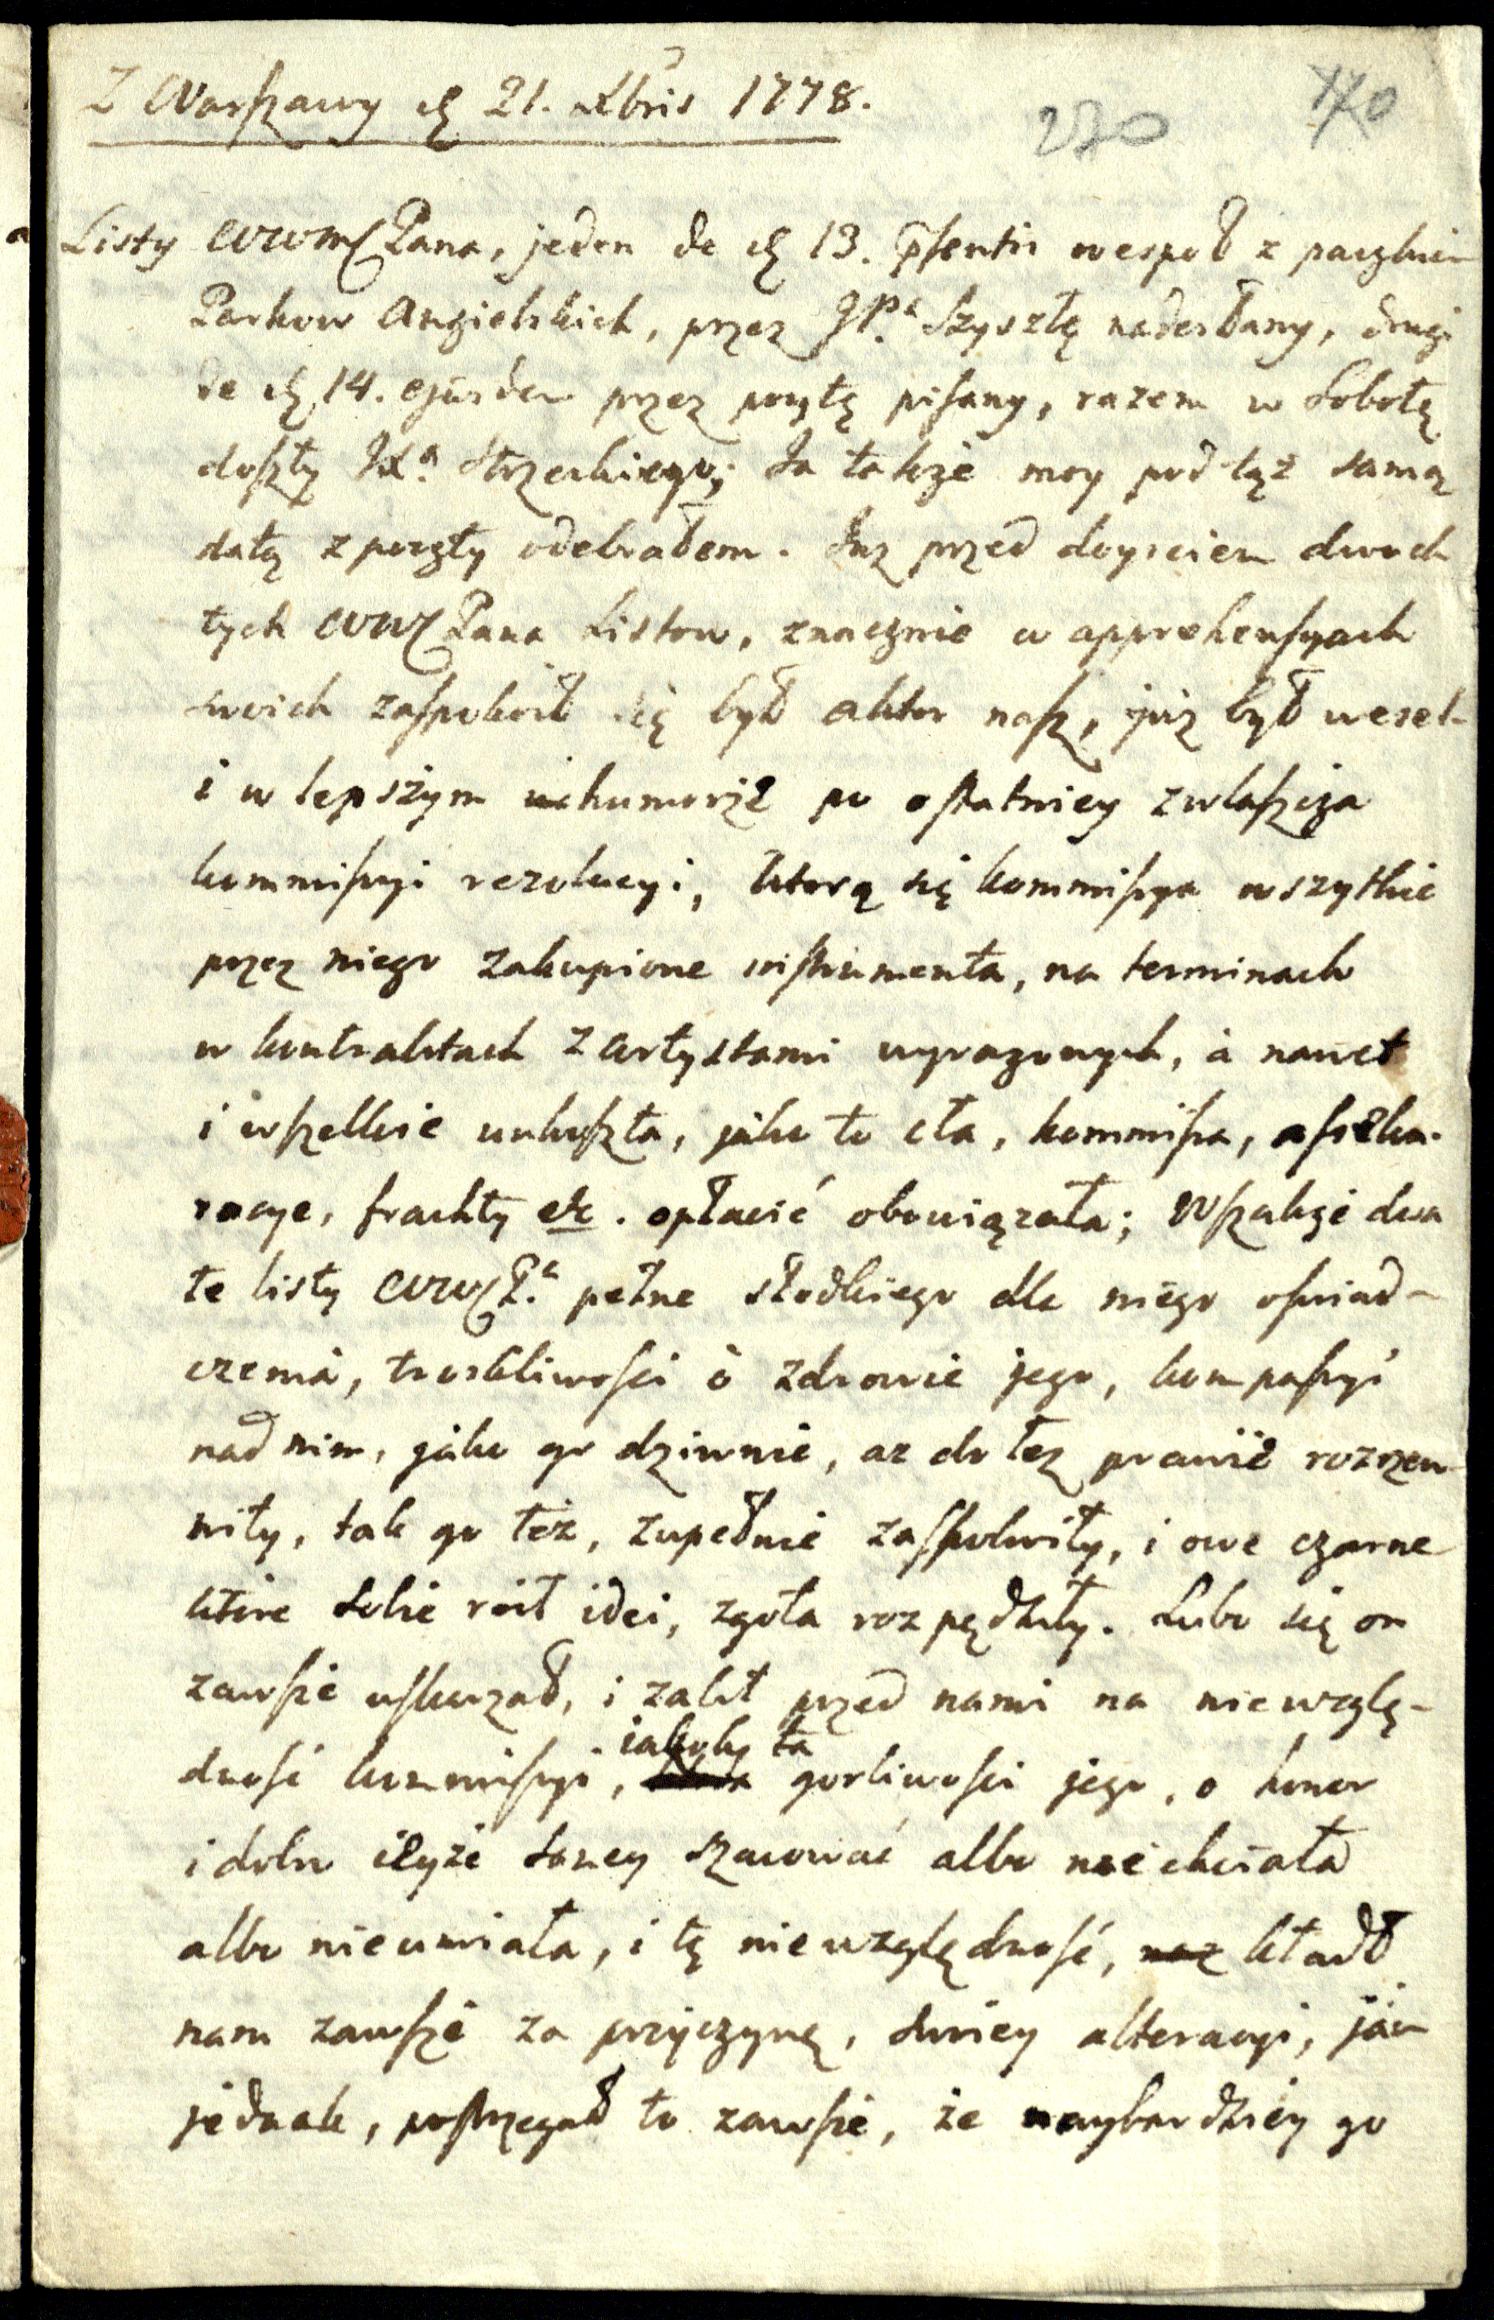 Z Warszawy d. 21. Xbris 1778.
270 170
Listy WWMć Pana, jeden de d. 13. pſentis wespoł z paczkiem
Parkow Angielskich, przez JP.ᵃ Szysztę nadesłany, drugi
de d. 14. ejusdem przez pocztę piſany, razem w Sobotę
doſzły Xa. Strzeckiego; Ja także moy pod tąż samą
datą z poczty odebrałem. Juz przed doyściem dwoch
tych WWć Pana Listow, znacznie w apprehenſyach
swoich zaſpokoił się był aktor naſz, już był wesel-
i w lepszym humorze po oſtatniey zwlaſzcza
kommiſſyi rezolucyi, ktorą się kommiſſya wszytkie
przez niego zakupione inſtrumenta, na terminach
w kontraktach z Artystami wyrazonych, a nawet
i wſzelkie unkoſzta, jako to cła, kommiſſa, aſſeku-
racye, frachty etc. opłacić obowiązała; Wſzakże dwa
te listy WWć P.ᵃ pełne słodkiego dla niego oſwiad-
czenia, troskliwoſci o zdrowie jego, kompaſſyi
nad nim, jako go dziwnie, az do łez prawie rozrzew-
niły, tak go też, zupełnie zaſpokoiły, i owe czarne
które sobie roił idei, zgoła rozpędziły. Lubo się on
zawſze uſkarzał, i zalił przed nami na niewzglę-
dnoſć kommiſſyi, iakoby ta gorliwoſci jego, o honor
i dobro teyże samey szacować albo nie chciała
albo nie umiała, i tę niewzględnoſć, kładł
nam zawſze za przyczynę, swoiey alteracyi, jam
jednak, poſtrzegał to zawſze, że naybardziey go